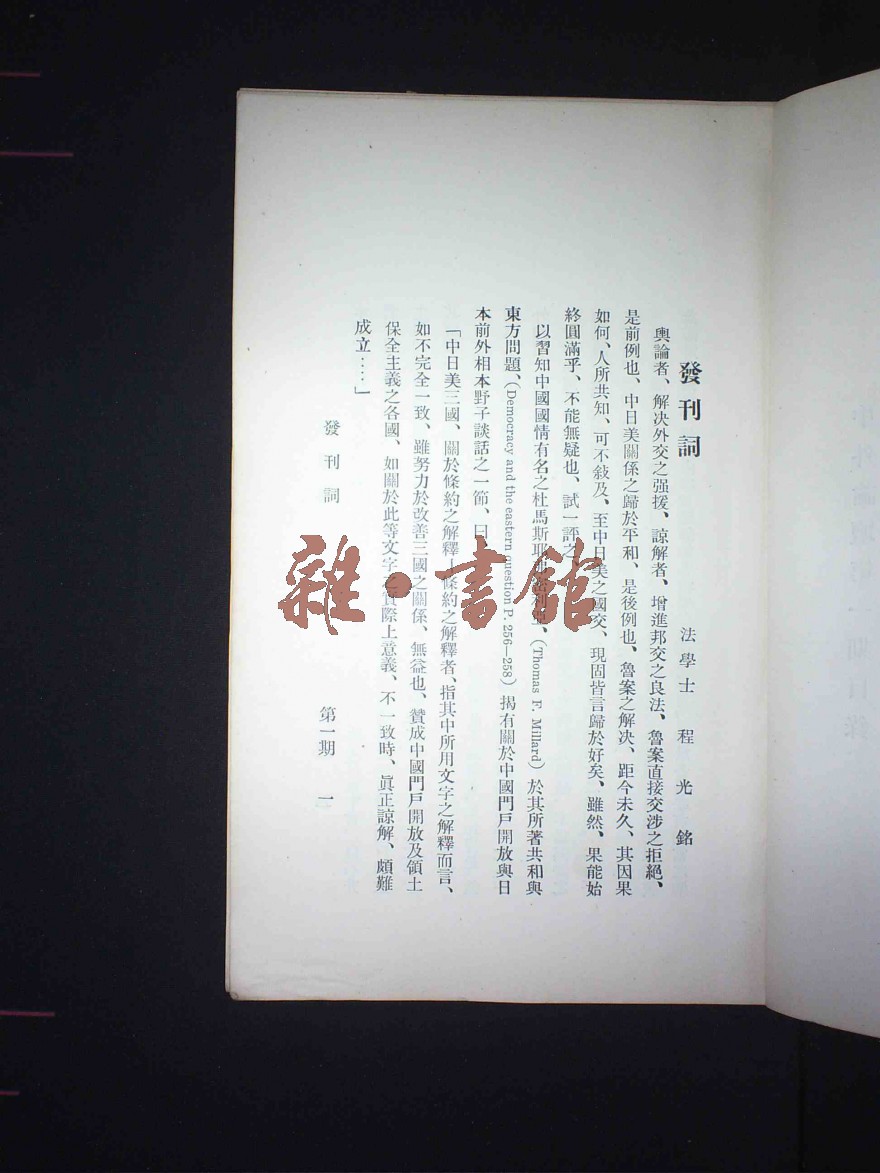 發刊詞
法學士　程光銘
輿論者、解決外交之强援、諒解者、增進邦交之良法、魯案直接交涉之拒絕、
是前例也、中日美關係之歸於平和、是後例也、魯案之解决、距今未久、其因果
如何、人所共知、可不敍及、至中日美之國交、現固皆言歸於好矣、雖然、果能始
終圓滿乎、不能無疑也、試一評之
以習知中國國情有名之杜馬斯耶（Thomas F. Millard）於其所著共和與
東方問題、（Democracy and the eastern question P. 256—258）揭有關於中國門戶開放與日
本前外相本野子談話之一節、曰
「中日美三國、關於條約之解釋條約之解釋者、指其中所用文字之解釋而言、
如不完全一致、雖努力於改善三國之關係、無益也、贊成中國門戶開放及領土
保全主義之各國、如關於此等文字實際上意義、不一致時、眞正諒解、頗難
成立‥‥」
發刊詞
第一期　一
雜·書館